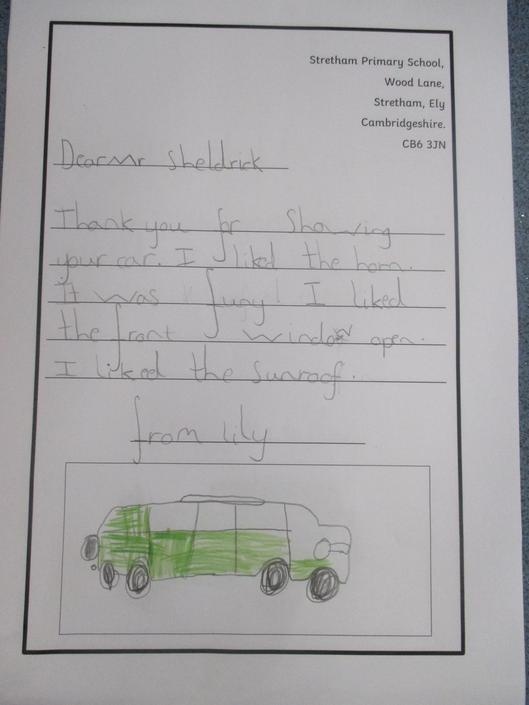 Stretham Primary School,
Wood Lane,
Stretham, Ely
Cambridgeshire.
CB6 3JN
Dear Mr Sheldrick
Thank you for Showing
your car. I liked the horn.
It was funy! I liked
the front window open.
I liked the sunroof.
from lily